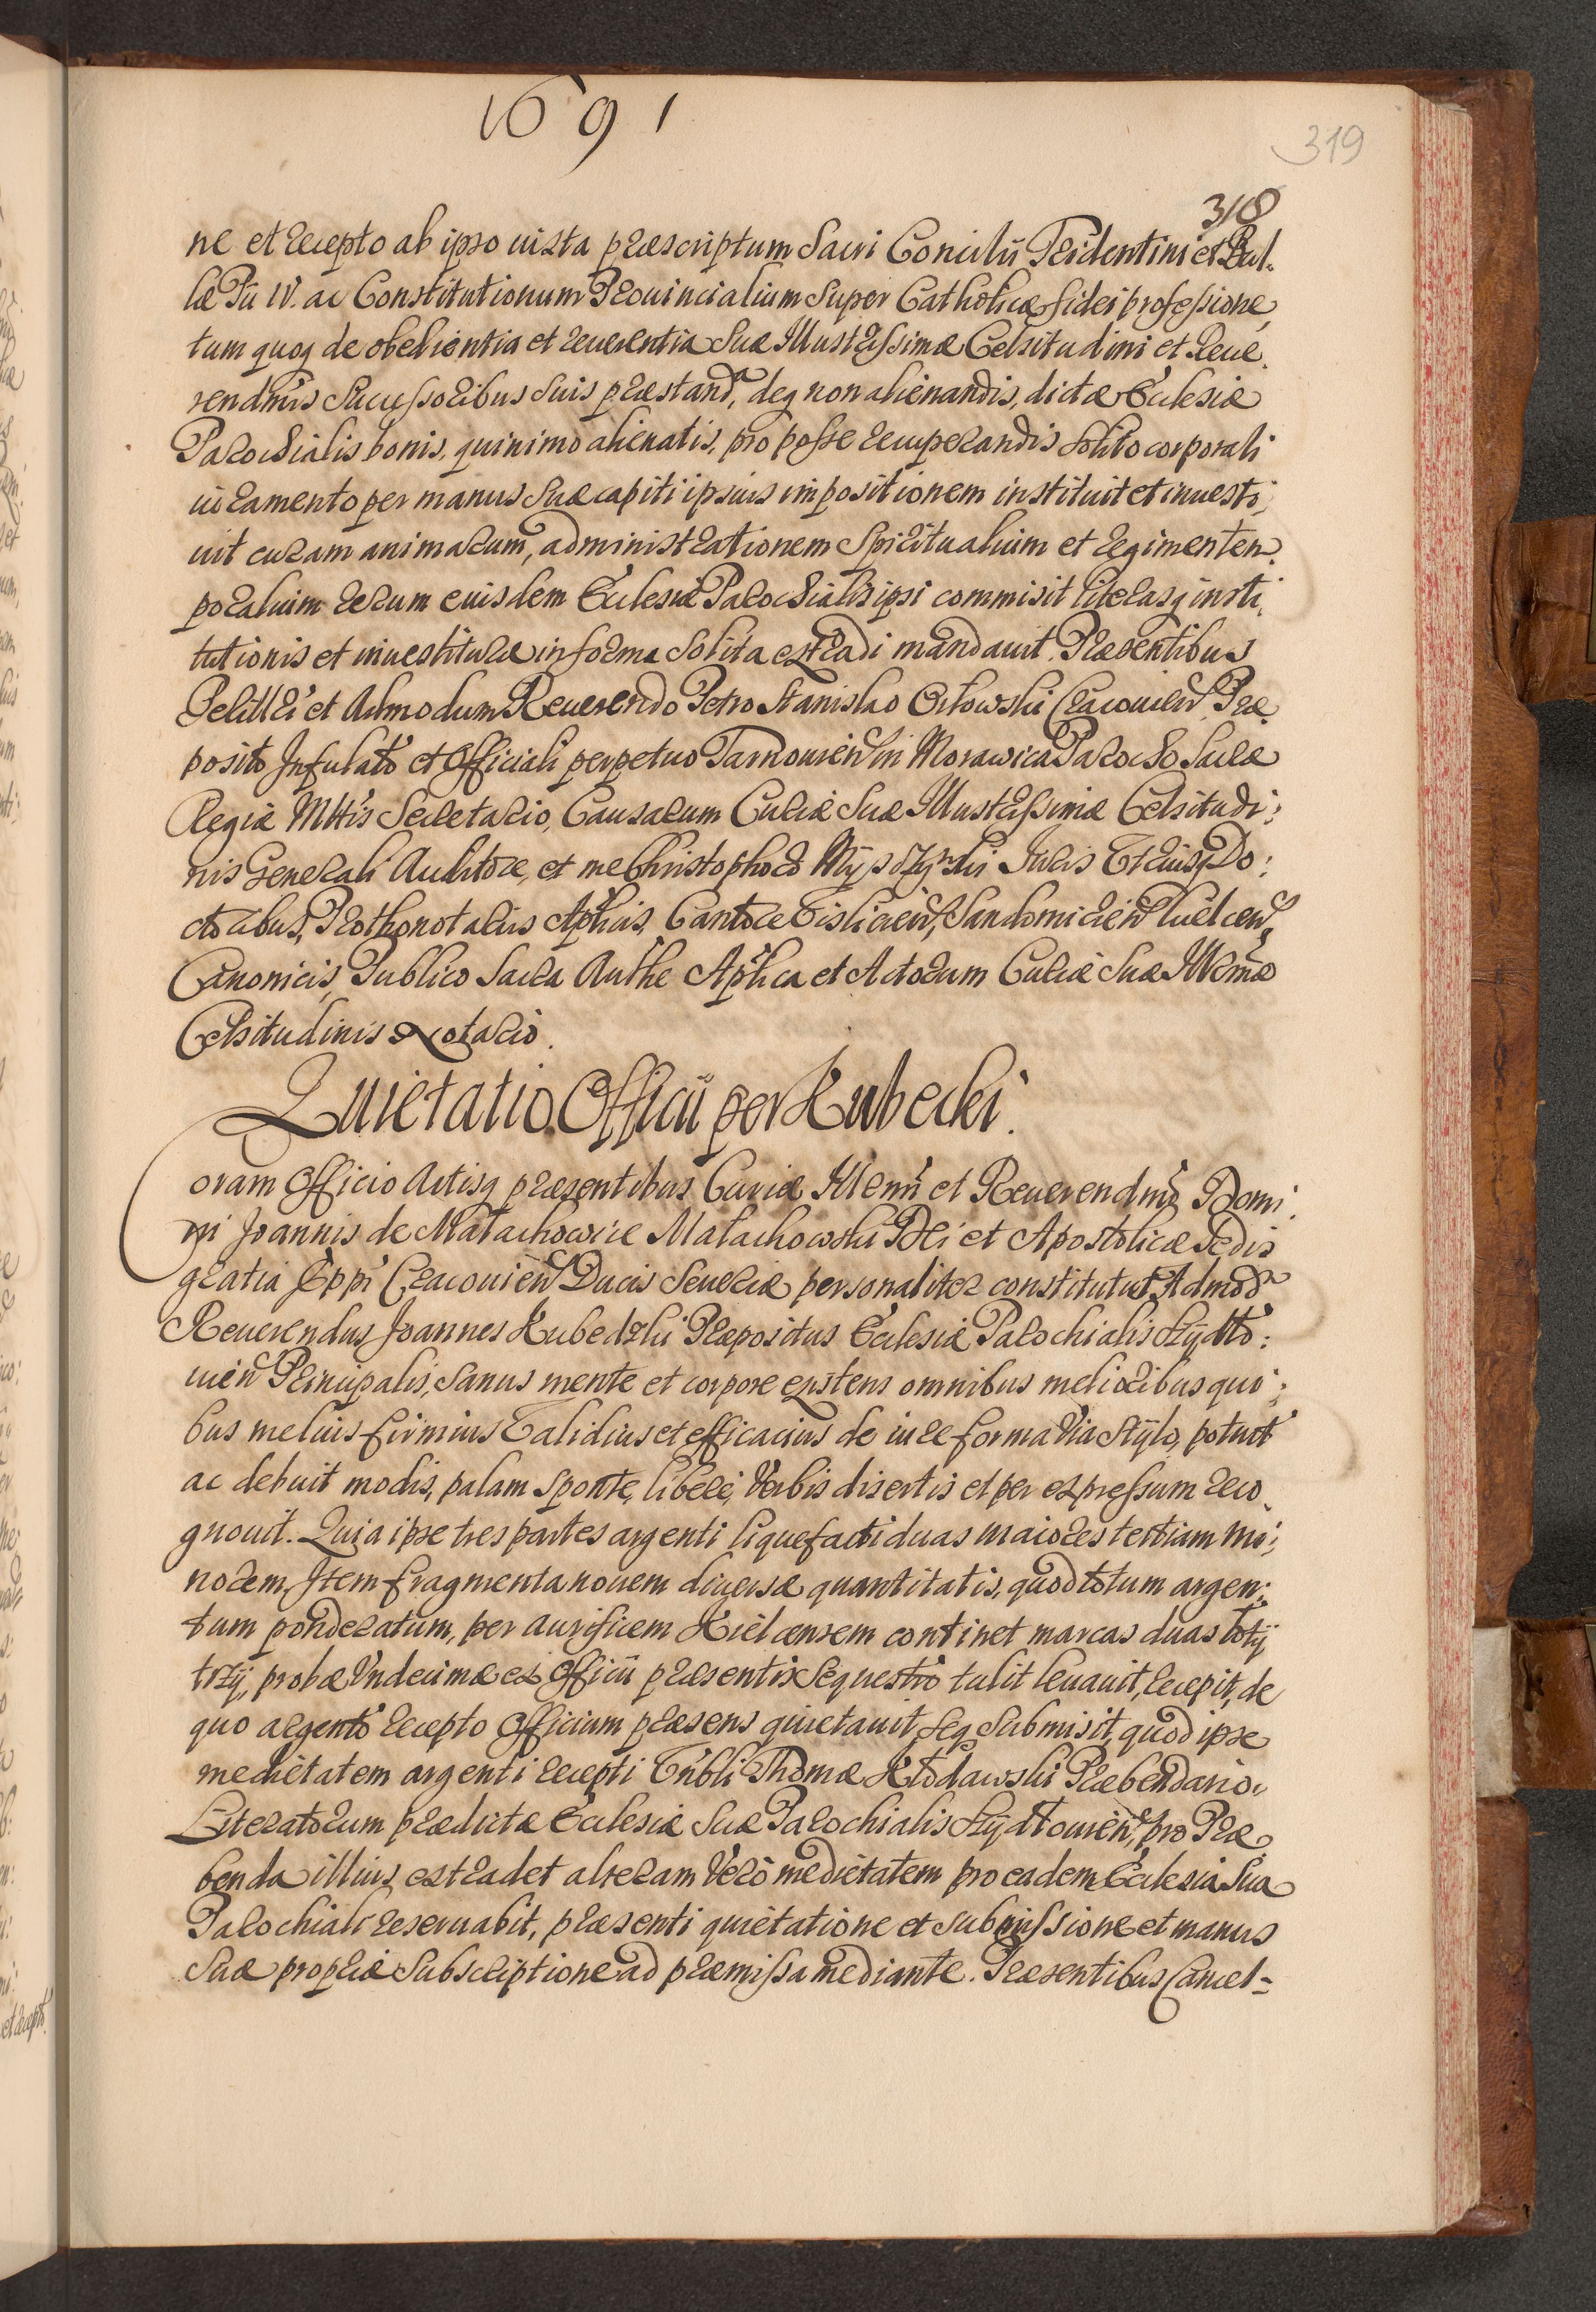 1691
319
318
ne et recepto ab ipso iuxta præscriptum Sacri Concilii Tridentini et Bul-
læ Pii IV. ac Constitutionum Prouincialium super Catholicæ fidei professione,
tum quoq de obedientia et reuerentia Suæ Illustrissimæ Celsitudini et Reue-
rendmis Successoribus suis præstand, deq non alienandis, dictæ Ecclesiæ
Parochialis bonis, quinimo alienatis, pro posse recuperandis solito corporali
iuramento per manus suæ capiti ipsius impositionem instituit et inuesti;
uit curam animarum, administrationem Spiritualium et regimen tem-
poralium rerum eiusdem Ecclesiæ Parochialis ipsi commisit literasq insti,
tutionis et inuestituræ in forma solita extradi mandauit. Præsentibus
Perillri et Admodum Reuerendo Petro Stanislao Orłowski Cracouien Præ
posito Infulato et Officiali perpetuo Tarnouien in Morawica Parocho Sacræ
Regiæ Mttis Secretario, Causarum Curiæ Suæ Illustrissimæ Celsitudi;
nis Generali Auditore, et me Christophoro Juris Vtriusq Do:
ctoribus, Prothonotariis Aplicis, Cantore Vislicien, Sandomirien Kielcen,
Canonicis, Publico Sacra Authe Aplica et Actorum Curiæ Suæ Illmæ
Celsitudinis Notario.
Quietatio Officii per Kubecki.
Coram Officio Actisq præsentibus Curiæ Illmi et Reuerendmi Domi:
ni Joannis de Małachowice Małachowski Dei et Apostolicæ Sedis
gratia Eppi Cracouien Ducis Seueriæ personaliter constitutus Admod
Reuerendus Joannes Kubedzki Præpositus Ecclesiæ Parochialis Szydło:
uien Principalis, sanus mente et corpore exstens omnibus melioribus qui;
bus melius firmius Validius et efficacius de iure forma Via Stylo, potuit
ac debuit modis, palam sponte, libere, Verbis disertis et per expressum reco,
gnouit. Quia ipse tres partes argenti liquefacti duas maiores tertiam mi;
norem, Item fragmenta nouem diuersæ quantitatis, quod totum argen;
tum ponderatum, per aurificem Kielcensem continet marcas duas łoty
trzy, probæ Vndecimæ ex Officii præsentis Sequestro tulit leuauit, recepit, de
quo argento recepto Officium præsens quietauit, seq submisit, quod ipse
medietatem argenti recepti Vnbli Thomæ Kłodawski Præbendario,
Literatorum prædictæ Ecclesiæ Suæ Parochialis Szydłouien, pro Præ
benda illius extradet alteram Vero medietatem pro eadem Ecclesia Sua
Parochiali reseruabit, præsenti quietatione et submissione et manus
suæ propriæ subscriptione ad præmissa mediante. Præsentibus Cancel=